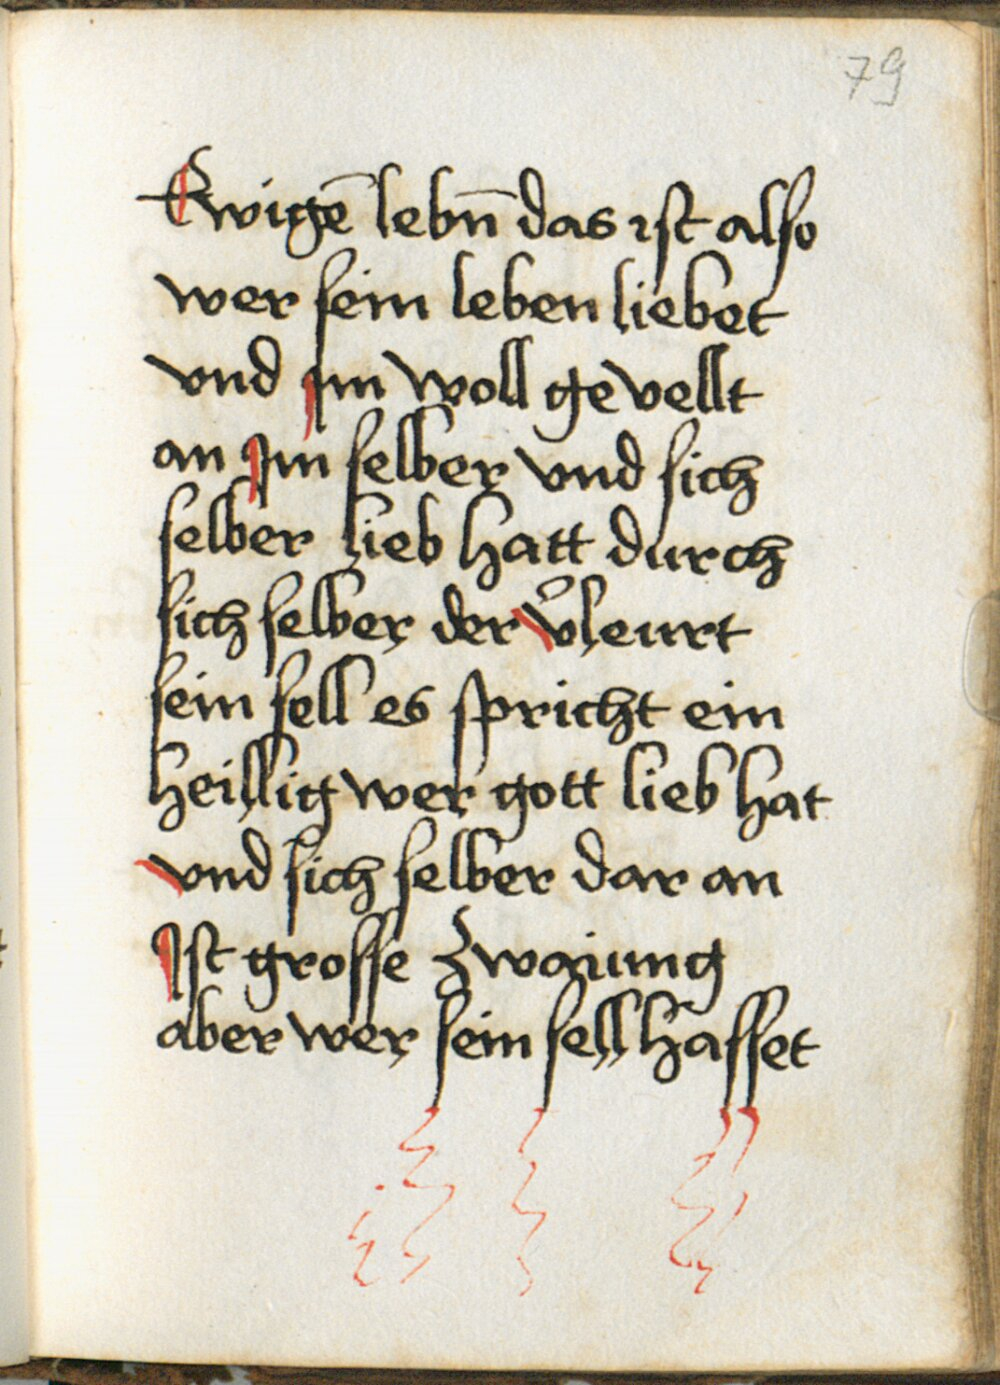 79
Ewigē lebn̄ das ist also
wer sein leben liebet
vnd im woll gevellt
an Im selber vnd sich
selber lieb hatt durch
sich selber der v̉leurt
sein sell es spricht ein
heillig wer gott lieb hat
vnd sich selber dar an
Ist grosse zwaiung
aber wer sein sell hasset